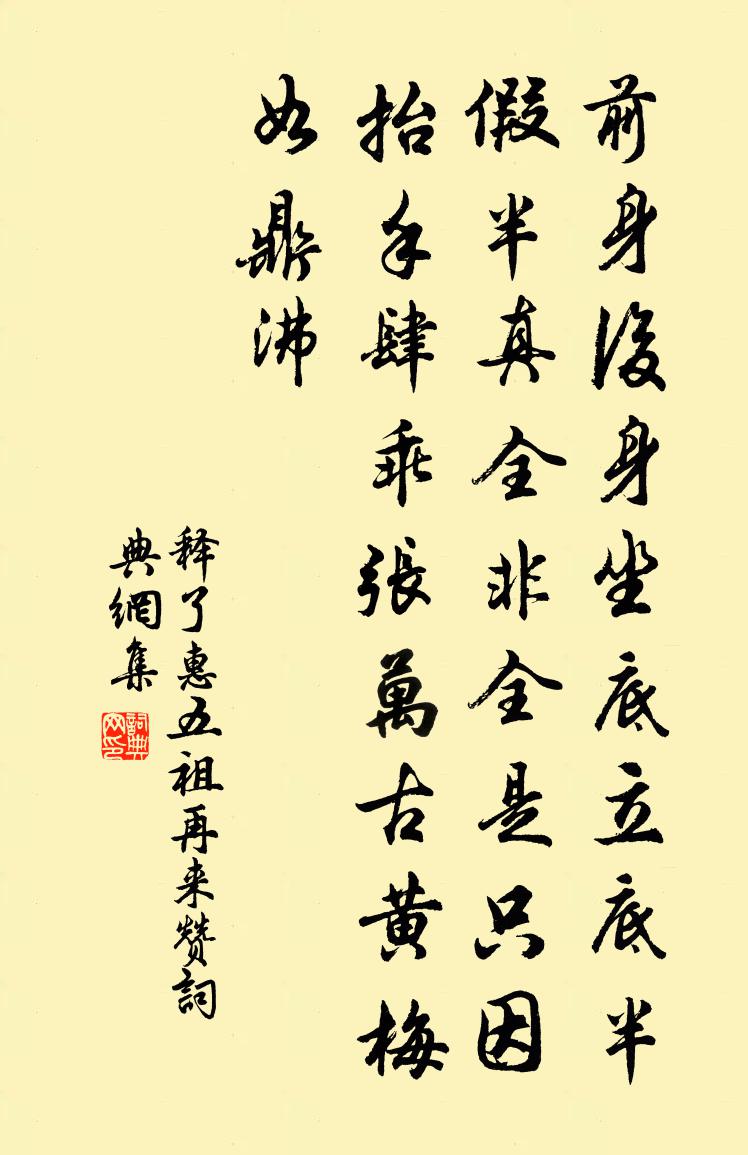 前身後身坐底立底半
假半真全非全是只因
抬手肆乖張萬古黄梅
如鼎沸
释了惠五祖再来赞詞
典網集
詞典
网印